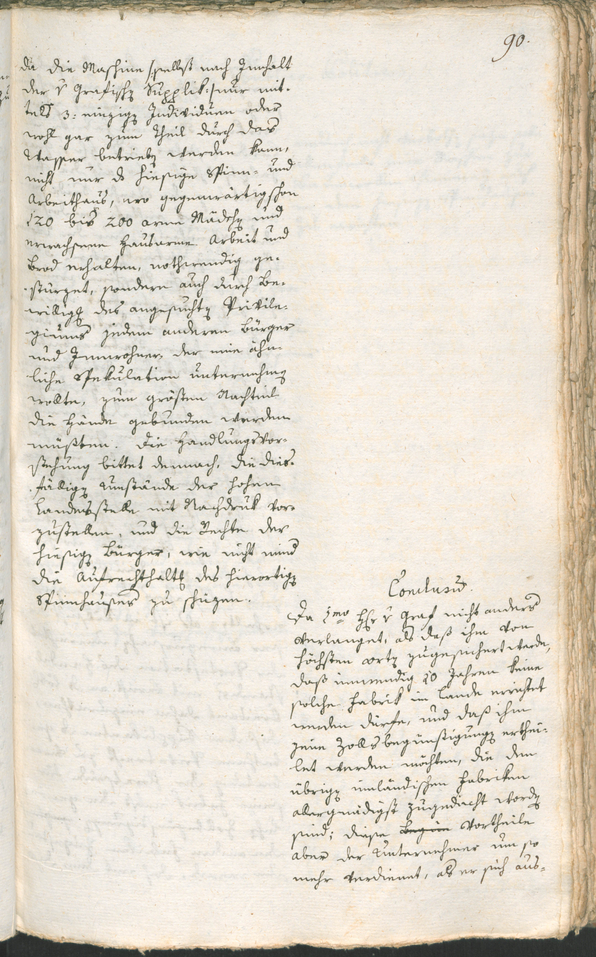 90.
da die Maschine /:selbst nach Innhalt
der v Grafischen Supplik:/ nur mit-
telst 3: einzigen Individuen oder
wohl gar zum Theil durch das
Wasser betrieben werden kann,
nicht nur das hiesige Spinn- und
Arbeithaus, wo gegenwärtig schon
120 bis 200 arme Mädchen und
erwachsene Hausarme Arbeit und
Brod erhalten, nothwendig ge-
stürzet, sondern auch durch Be-
willigung des angesuchten Privile-
giums jedem anderen Bürger
und Innwohner, der eine ähn-
liche Spekulation unternehmen
wollte, zum grösten Nachteil
die Hände gebunden werden
müßten. Die Handlungsvor-
stehung bittet demnach, die dies-
fälligen Umstände der hohen
Landesstelle mit Nachdruk vor-
zustellen, und die Rechte der
hiesigen Bürger, wie nicht mind
die Aufrechthaltung des hierortigen
Spinnhauses zu schüzen.
Conclusum.
Da 1mo Hr v Graf nicht anders
verlanget, als daß ihm von
höchsten Orten zugesichert werde,
daß innwendig 10 Jahren keine
solche Fabrik im Lande errichtet
werden dürfe, und daß ihm
jene Zollsbegünstigungen erthei-
let werden möchten, die den
übrigen inländischen Fabriken
allergnädigst zugedacht worden
sind; diese Vortheile
aber der Unternehmer um so
mehr verdienet, als er sich aus-